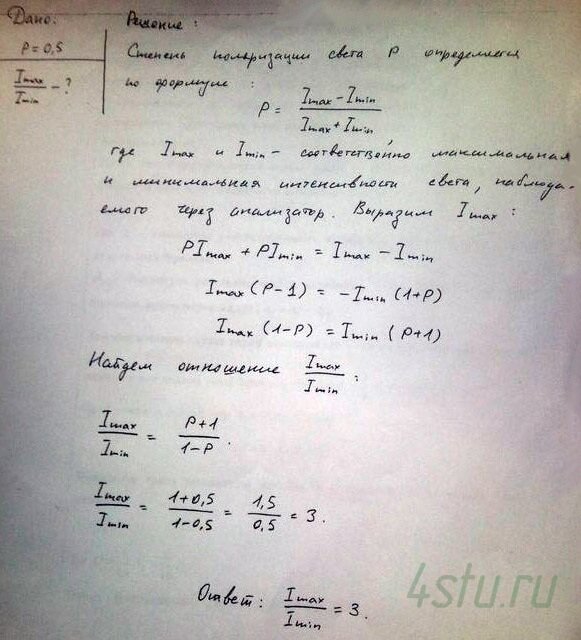 Дано:
P = 0,5
Imax/Imin - ?
Решение:
Степень поляризации света P определяется
по формуле:
P = (Imax - Imin)/(Imax + Imin),
где Imax и Imin - соответственно максимальная
и минимальная интенсивности света, наблюда-
емого через анализатор. Выразим Imax:
PImax + PImin = Imax - Imin
Imax (P-1) = -Imin (1+P)
Imax (1-P) = Imin (P+1)
Найдем отношение Imax/Imin:
Imax/Imin = (P+1)/(1-P).
Imax/Imin = (1+0,5)/(1-0,5) = 1,5/0,5 = 3.
Ответ: Imax/Imin = 3.
4stu.ru